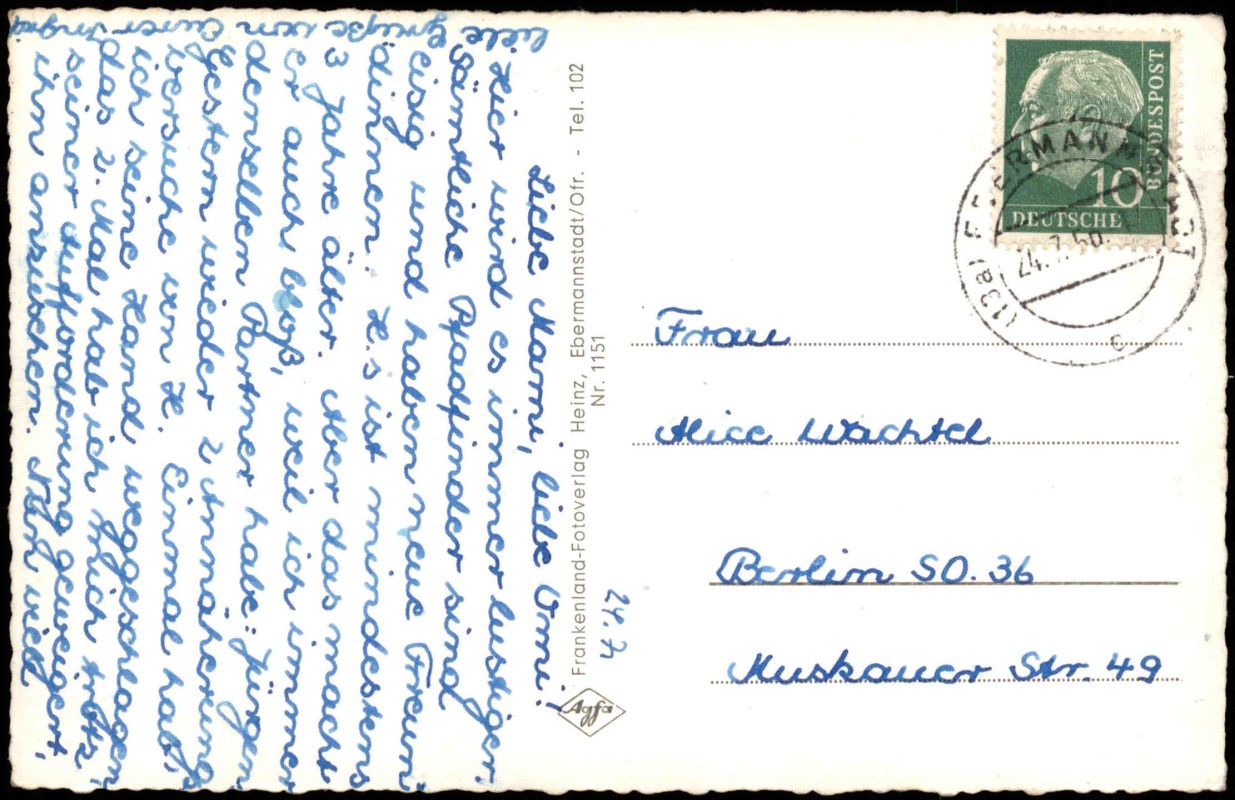 Liebe Mami, liebe Omi!
Hier wird es immer lustiger.
Sämtliche Pfadfinder sind
eisig und haben neue Freun
dinnen. H.s ist mindestens
3 Jahre älter. Aber das macht
er auch bloß, weil ich immer
denselben Partner habe: Jürgen
Gestern wieder 2 Annäherung
versuche von H. Einmal hab'
ich seine Hand weggeschlagen,
das 2. Mal hab ich mich trotz
seiner Aufforderung geweigert,
ihn anzusehen.
viele Grüße von Eurer
24. 7.
Frankenland-Fotoverlag Heinz, Ebermannstadt/Ofr. - Tel. 102
Nr. 1151
Agfa
10
DEUTSCHE
BUNDESPOST
(13a) EBERMANNSTADT
24.7.60.
c
Frau
Alice Wachtel
Berlin SO. 36
Muskauer Str. 49